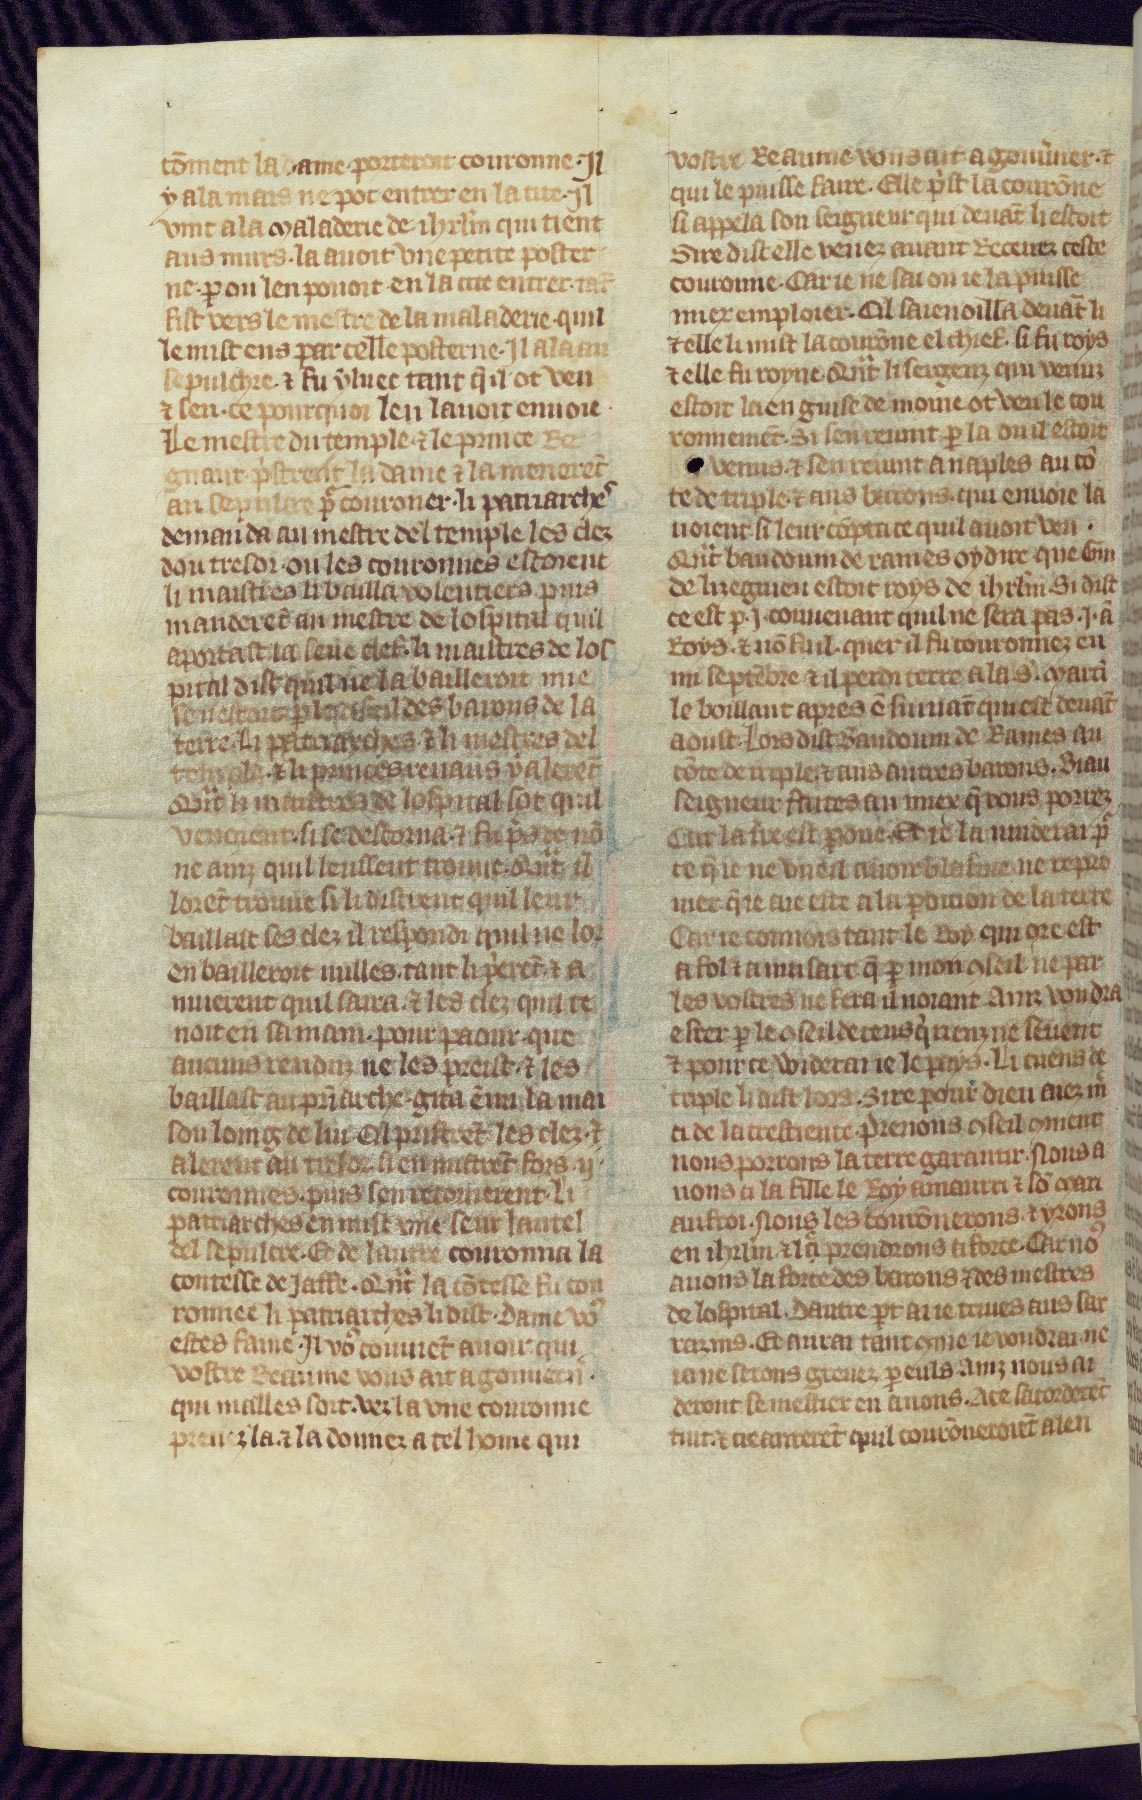 cõment la dame porteroit couronne. Il
y ala mais ne pot entrer en la cite. Il
vint a la maladerie de ihrlm̃ qui tient
aus murs. la auoit vne petite poster
ne. p̱ ou len pouoit en la cite entrer.
fist vers le mestre de la maladerie. quil
le mist ens par celle posterne. Il ala au
sepulchre. ⁊ fu yluec tant q̃l ot veu
⁊ seu. ce pourquoi len lauoit enuoie.
Le mestre du temple. ⁊ le prince Re
gnaut p̃strent la dame ⁊ la menerẽt
au sepulcre p̃ couroner. li patriarches
demanda au mestre del temple les clez
dou tresor. ou les couronnes estoient
li maistres li bailla volentiers. puis
manderẽt au mestre de lospital quil
aportast la seue clef. li maistres de los
pital dist quil ne la bailleroit mie
se nestoit p̱ le conseil des barons de la
terre. Li patriarches ⁊ li mestres del
temple. ⁊ li princes renaus y alerẽt
Qñt li maistres de lospital sot quil
venoient. si se destorna. ⁊ fu p̃s de nõ
ne ainz quil leussent trouue. Qñt il
lorẽt trouue si li distrent quil leur
baillast ses clez il respondi quil ne lor
en bailleroit nulles. tant li p̃erẽt. ⁊ a
nuierent quil saira. ⁊ les clez quil te
noit en sa main. pour paour que
aucuns renduz ne les preist. ⁊ les
baillast au pr̃iarche. gita ẽmi la mai
son loing de lui. Cil pristrẽt les clez. ⁊
alerent au tresor. si en mistrẽt fors. ij.
couronnes. puis sen retornerent. Li
patriarches en mist vne seur lautel
del sepulcre. Et de lautre couronna la
contesse de Jaffe. Qñt la cõtesse fu cou
ronnee li patriarches li dist. Dame võ
estes fame. Il võ couuiẽt auoir qui
vostre Reaume vous ait a gouuern̄.
qui malles soit. vez la vne couronne
prenez la. ⁊ la donnez a tel home qui
vostre Reaume vous ait a gouũner. ⁊
qui le puisse faire. Elle p̃st la courõne
si appela son seigneur qui deuãt li estoit
Sire dist elle venez auant Receuez ceste
couronne. Car ie ne sai ou ie la puisse
miex emploier. Cil saienoilla deuãt li
⁊ elle li mist la courõne el chief. si fu roys
⁊ elle fu royne. Qñt li sergenz qui venuz
estoit la en guise de moine ot veu le cou
ronnemẽt. Si sen reuint p̱ la ou il estoit
venus. ⁊ sen reuint a naples au cõ
te de triple. ⁊ aus barons. qui enuoie la
uoient si leur cõpta ce quil auoit veu.
Qñt baudouin de rames oy dire que Gui
de lizeguieu estoit roys de ihrlm̃. Si dist
ce est p̱. j. conuenant quil ne sera pas. j. ã
Roys. ⁊ nõ fuil. quer il fu couronnez en
mi septẽbre ⁊ il perdi terre a la s̃. marti
le boillant apres ẽ siuuãt qui est deuãt
aoust. Lors dist Baudouin de Rames au
cõte de triple. ⁊ aus autres barons. Biau
seigneur faites au miex q̃ vous porrez
Car la t̃re est p̱due. Et ie la uuiderai p̃
ce q̃ ie ne vueil auoir blasme. ne repro
uier. q̃ ie aie este a la p̱dition de la terre
Car ie connois tant le Roy qui ore est
a fol ⁊ a musart q̃ p̱ mon ꝯseil ne par
les vostres ne fera il noiant. Ainz voudra
ester p̱ le ꝯseil de ceus q̃ rienz ne seuent
⁊ pour ce widerai ie le pays. Li cuens de
triple li dist lors. Sire pour dieu aiez m̃
ci de la crestiente. Prenons ꝯseil ꝯment
nous porrons la terre garantir. Nous a
uons ci la fille le Roy amaurri ⁊ sõ mari
aufroi. Nous les courõnerons. ⁊ yrons
en ihrlm̃ ⁊ la prendrons a force. Car nõ
auons la force des barons ⁊ des mestres
de lospital. Dautre p̱t ai ie triues aus sar
razins. Et aurai tant ꝯme ie voudrai. ne
ia ne serons greuez p̱ euls. Ainz nous ai
deront se mestier en auons. A ce sacorderẽt
tuit. ⁊ creanterẽt quil courõneroiẽt a len